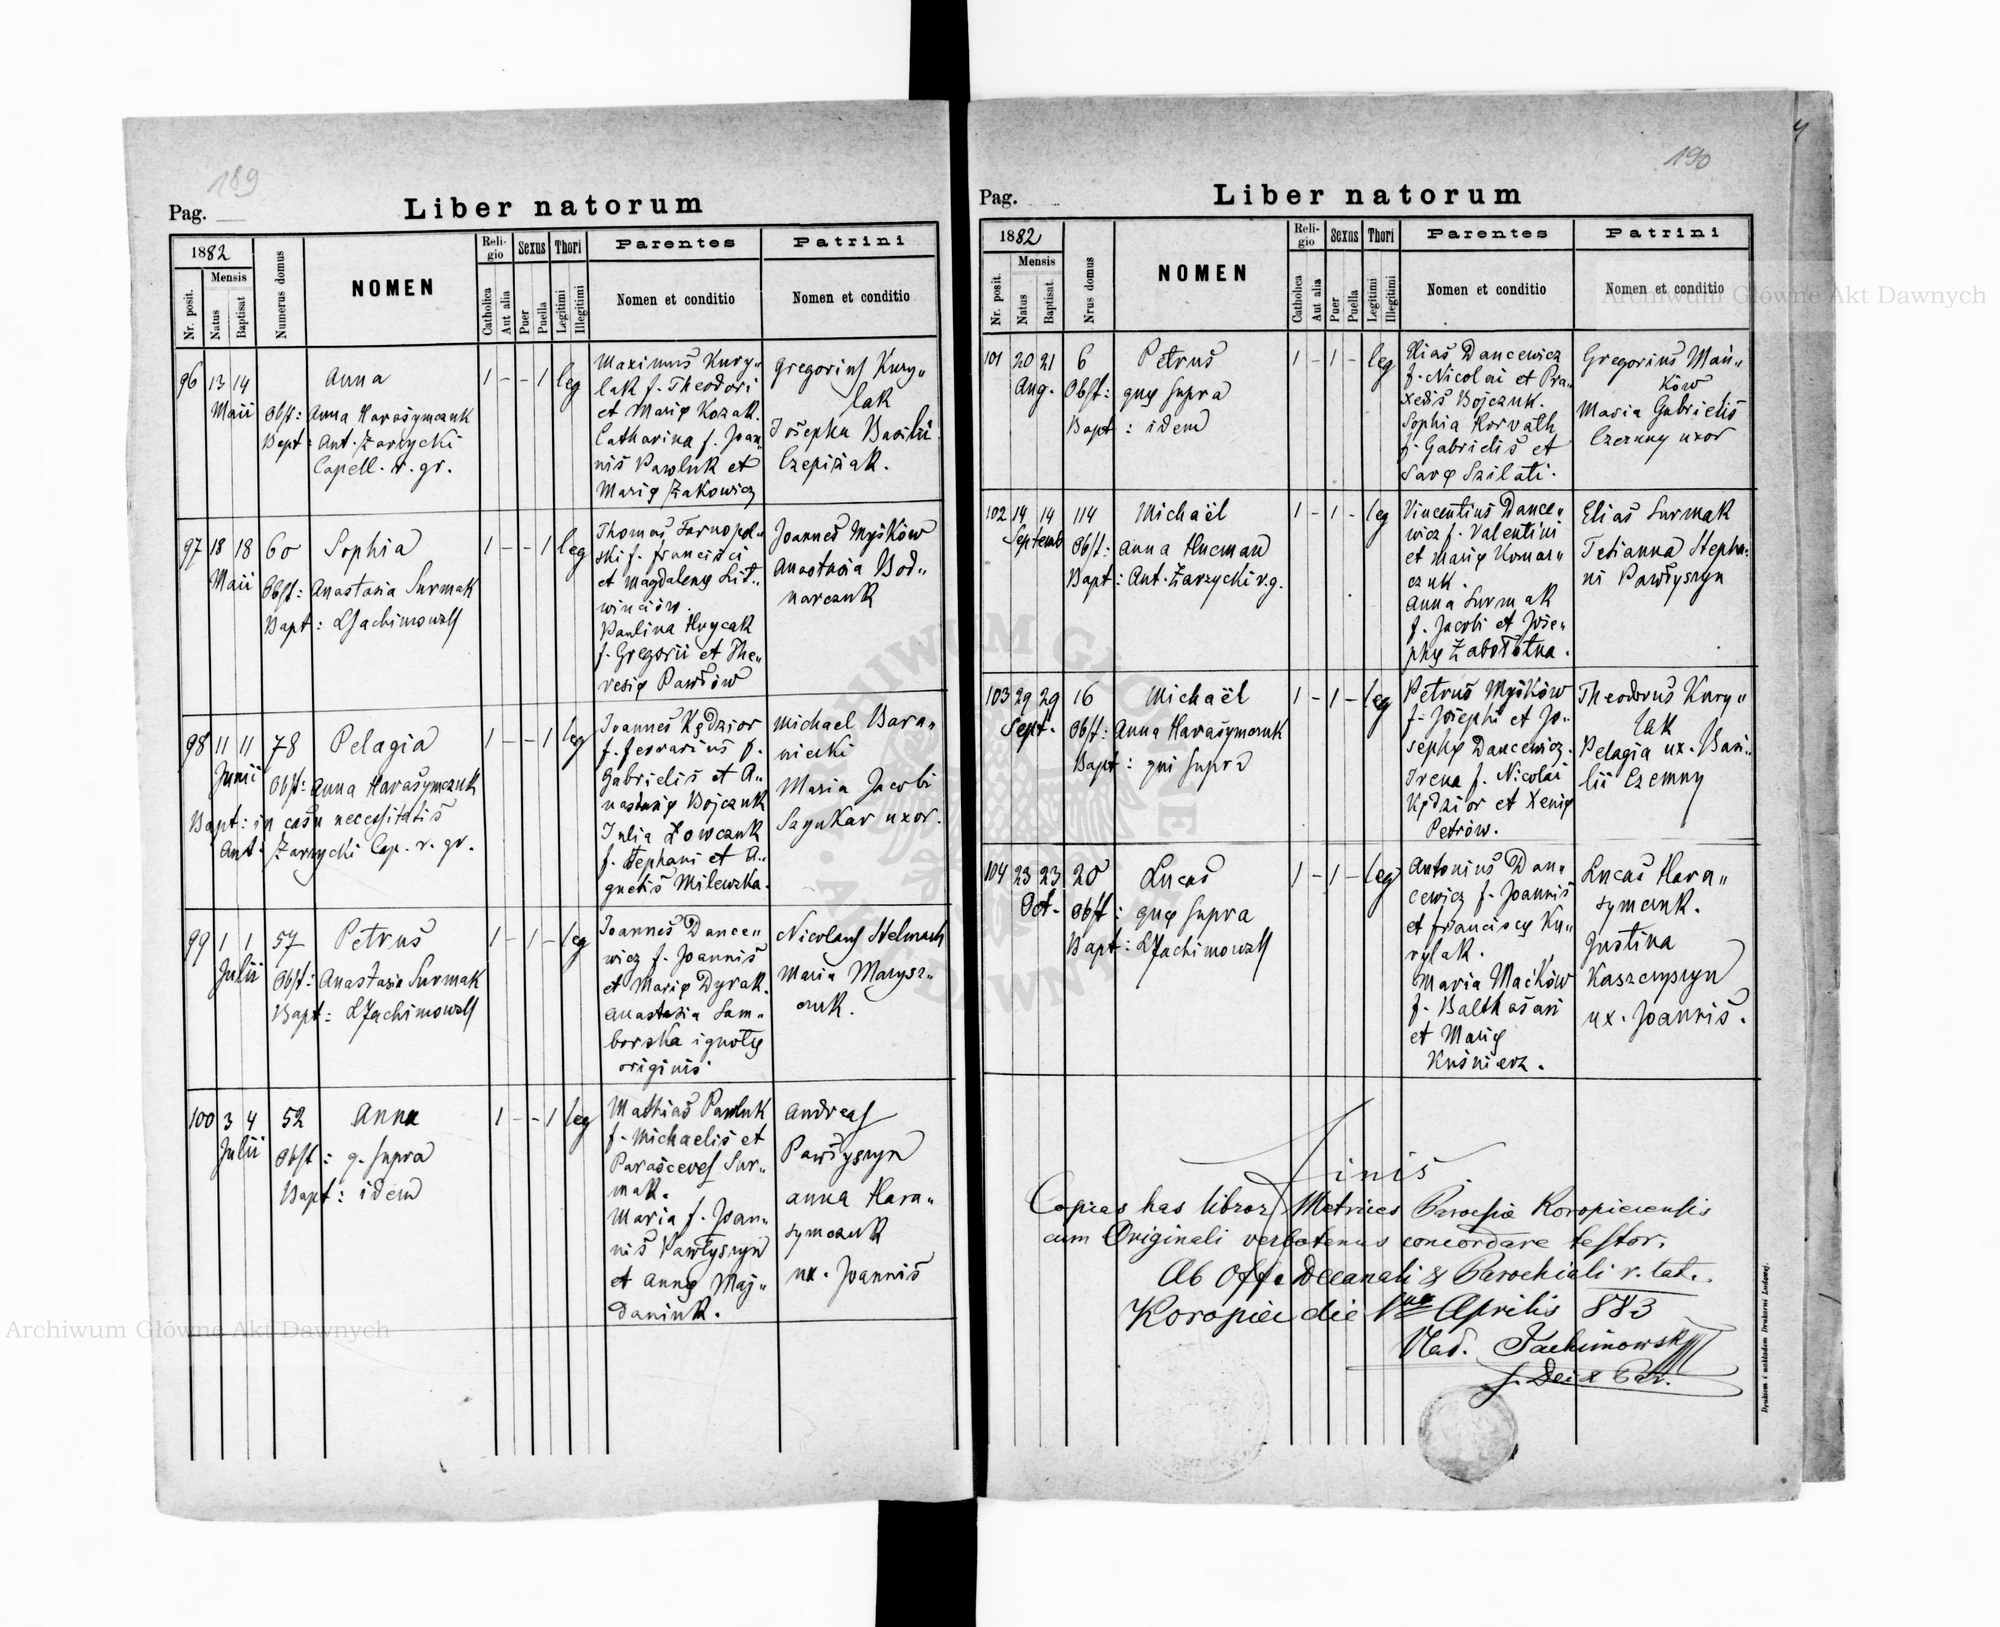 189
Pag.
Liber natorum
1882
Mensis
Nr. posit.
Natus
Baptisat.
Numerus domus
NOMEN
Religio
Catholica
Aut alia
Sexus
Puer
Puella
Thori
Legitimi
Illegitimi
Parentes
Nomen et conditio
Patrini
Nomen et conditio
96 13 14 Anna 1 - - 1 leg
Maii
Obst: Anna Harasymczuk
Bapt: Ant. Żarzycki
Capell. r. gr.
Maximus Kury„
lak f. Theodori
et Marię Kozak.
Catharina f. Joan„
nis Pawluk et
Marię Żakowicz
Gregorius Kury„
lak
Josepha Basilii
Czepiżak.
97 18 18 60 Sophia 1 - - 1 leg
Maii
Obst: Anastasia Surmak
Bapt: Jachimowski
Thomas Tarnopol„
ski f. Francisci
et Magdalenę Lit„
winciów.
Paulina Hrycak
f. Gregorii et The„
resię Pawłów
Joannes Myśków
Anastasia Bod„
narczuk
98 11 11 78 Pelagia 1 - - 1 leg
Junii
Obst: Anna Harasymczuk
Bapt: in casu necessitatis
Ant. Żarzycki Cap. r. gr.
Joannes Kędzior
f. ferrarius f.
Gabrielis et A„
nastasię Bojczuk
Julia Łowczuk
f. Stephani et A„
gnetis Milewska.
Michael Bara„
niecki
Maria Jacobi
Saynkar uxor.
99 1 1 57 Petrus 1 - 1 - leg
Julii
Obst: Anastasia Surmak
Bapt: Jachimowski
Joannes Dance„
wicz f. Joannis
et Marię Dyrak.
Anastasia Sam„
borska ignotę
originis
Nicolaus Stelmach
Maria Marysz„
czuk.
100 3 4 52 Anna 1 - - 1 leg
Julii
Obst: q. supra
Bapt: idem
Mathias Pawluk
f. Michaelis et
Parasceves Sur„
mak.
Maria f. Joan„
nis Pawłyszyn
et Annę Maj„
daniuk.
Andreas
Pawłyszyn
Anna Hara„
symczuk
ux. Joannis
190
Pag.
Liber natorum
1882
Mensis
Nr. posit.
Natus
Baptisat.
Nrus domus
NOMEN
Religio
Catholica
Aut alia
Sexus
Puer
Puella
Thori
Legitimi
Illegitimi
Parentes
Nomen et conditio
Patrini
Nomen et conditio
101 20 21 6 Petrus 1 - 1 - leg
Aug.
Obst: quę supra
Bapt: idem
Elias Dancewicz
f. Nicolai et Pra„
xedis Bojczuk.
Sophia Horvath
f. Gabrielis et
Sarę Szilati.
Gregorius Mań„
ków
Maria Gabrielis
Czerany uxor
102 14 14 114 Michaël 1 - 1 - leg
Septemb
Obst: Anna Hucman
Bapt: Ant. Żarzycki r.g.
Vincentius Dance„
wicz f. Valentini
et Marię Komar„
czuk.
Anna Surmak
f. Jacobi et Jose„
phę Zabołotna.
Elias Surmak
Tetianna Stepha„
ni Pawłyszyn
103 29 29 16 Michaël 1 - 1 - leg
Sept.
Obst: Anna Harasymczuk
Bapt: qui supra
Petrus Myśków
f. Josephi et Jo„
sephę Dancewicz.
Irena f. Nicolai
Kędzior et Xenię
Petrów.
Theodorus Kury„
lak
Pelagia ux. Basi„
lii Czemny
104 23 23 20 Lucas 1 - 1 - leg
Oct.
Obst: quę supra
Bapt: Jachimowski
Antonius Dan„
cewicz f. Joannis
et Franciscę Ku„
rylak.
Maria Maćków
f. Balthasari
et Marię
Kuśnierz.
Lucas Hara„
symczuk.
Justina
Kaszczyszyn
ux. Joannis.
Finis
Copias has libror Metrices Paroesię Koropiecensis
cum Originali verbotenus concordare testor.
Ab Offo Decanali & Parochiali r. lat.
Koropiec die 1ma Aprilis 883
Vlad. Jachimowski
Drukiem i nakładem Drukarni Ludowej.
Archiwum Główne Akt Dawnych
Archiwum Główne Akt Dawnych